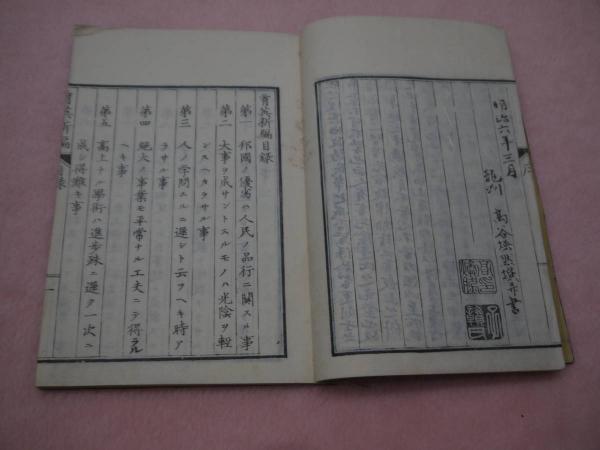 明治六年三月
龍洲
序
育英新編目録
第一 邦國ノ優劣ハ人民ノ品行ニ關スル事
第二 大事ヲ成サントスルモノハ光陰ヲ輕
ンスヘカラサル事
第三 人ノ學問スルニ遲シト云フヘキ時ア
ラサル事
第四 絶大ノ事業モ平常ナル工夫ニテ得ラル
ヘキ事
第五 高上ナル學術ハ進歩殊ニ遲ク一次ニ
成シ得難キ事
育英新編
目録
一